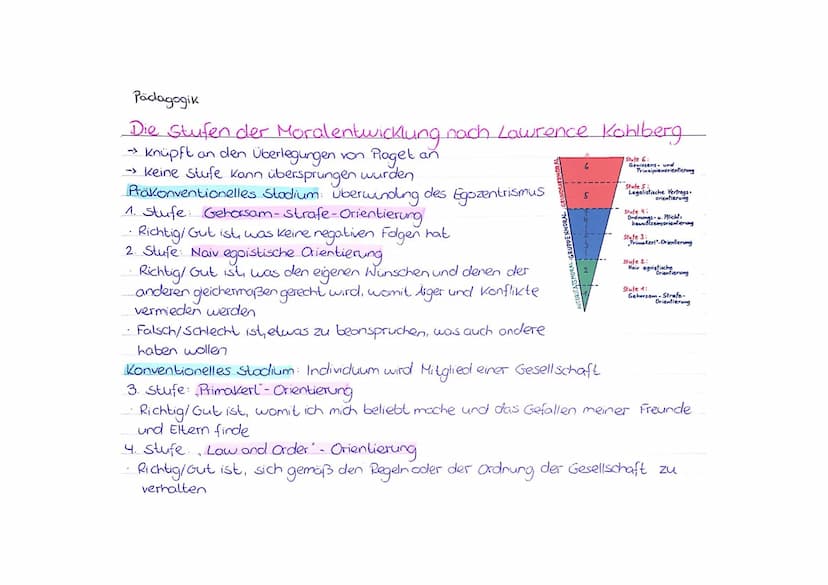 Pädagogik
Die Stufen der Moralentwicklung nach Lawrence Kohlberg
→ Knüpft an den Überlegungen von Piaget an
→ Keine Stufe kann übersprungen wurden
Präkonventionelles Stadium: Überwindung des Egozentrismus
1. Stufe: Gehorsam-Strafe-Orientierung
· Richtig/Gut ist, was keine negativen Folgen hat
2. Stufe: Naiv egoistische Orientierung
· Richtig/Gut ist, was den eigenen Wünschen und denen der
anderen gleichermaßen gerecht wird, womit Ärger und Konflikte
vermieden werden
· Falsch/Schlecht ist, etwas zu beanspruchen, was auch andere
haben wollen
Konventionelles Stadium: Individuum wird Mitglied einer Gesellschaft
3. Stufe: „Primakerl"-Orientierung
· Richtig/Gut ist, womit ich mich beliebt mache und das Gefallen meiner Freunde
und Eltern finde
4. Stufe: „Law and Order"-Orientierung
· Richtig/Gut ist, sich gemäß den Regeln oder der Ordnung der Gesellschaft zu
verhalten
6
5
2
Stufe 6:
Gewissens- und
Prinzipienorientierung
Stufe 5:
Legalistische Vertrags-
orientierung
Stufe 4:
Ordnungs- u. Pflicht-
bewusstseinsorientierung
Stufe 3:
„Primakerl"-Orientierung
Stufe 2:
Naiv egoistische
Orientierung
Stufe 1:
Gehorsam-Strafe-
Orientierung